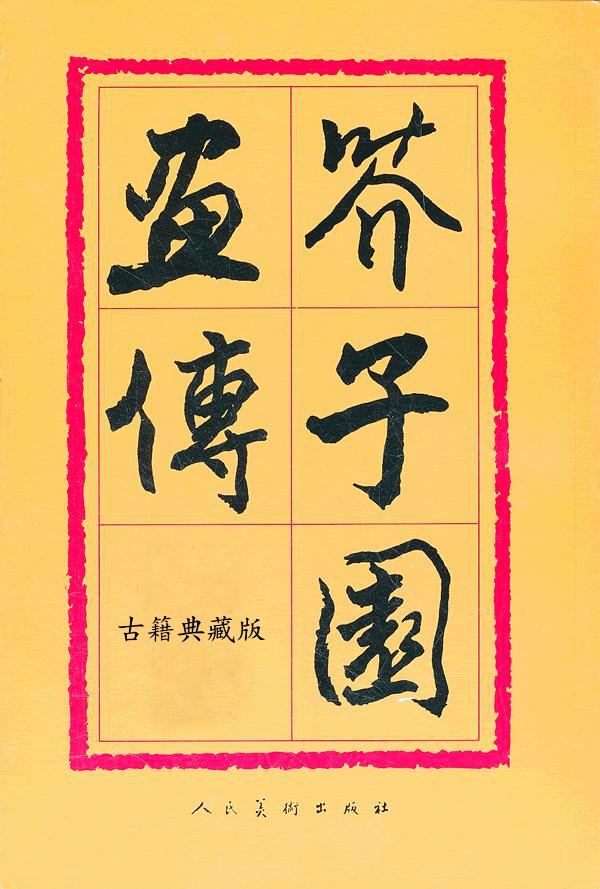 芥子園
畫傳
古籍典藏版
人民美術出版社